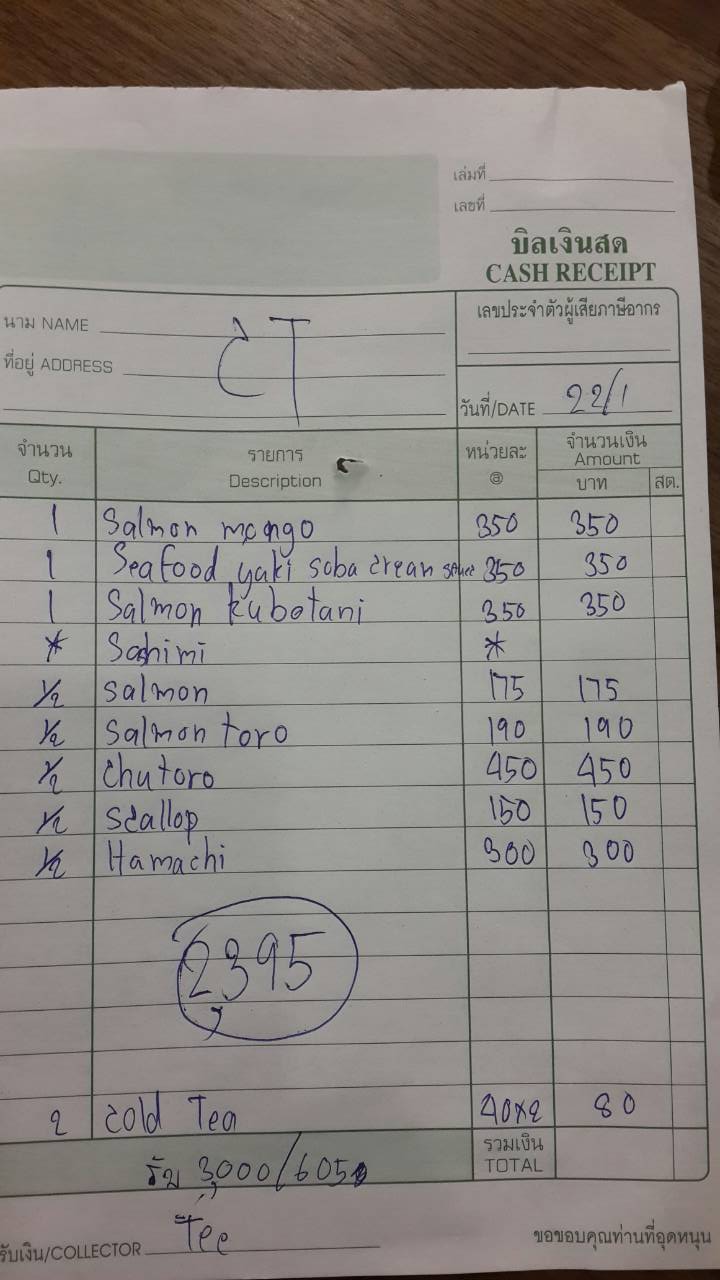 เล่มที่
เลขที่
บิลเงินสด
CASH RECEIPT
นาม NAME
ที่อยู่ ADDRESS
เลขประจำตัวผู้เสียภาษีอากร
วันที่/DATE 22/1
จำนวน รายการ หน่วยละ จำนวนเงิน
Qty. Description @ Amount
บาท สต.
1 Salmon mango 350 350
1 Seafood yaki soba crean sauce 350 350
1 Salmon kubotani 350 350
* Sashimi *
1/2 salmon 175 175
1/2 salmon toro 190 190
1/2 chutoro 450 450
1/2 scallop 150 150
1/2 Hamachi 300 300
2,395
2 cold Tea 40x2 80
รวมเงิน
TOTAL
รับ 3,000/605
Tee
รับเงิน/COLLECTOR
ขอขอบคุณท่านที่อุดหนุน